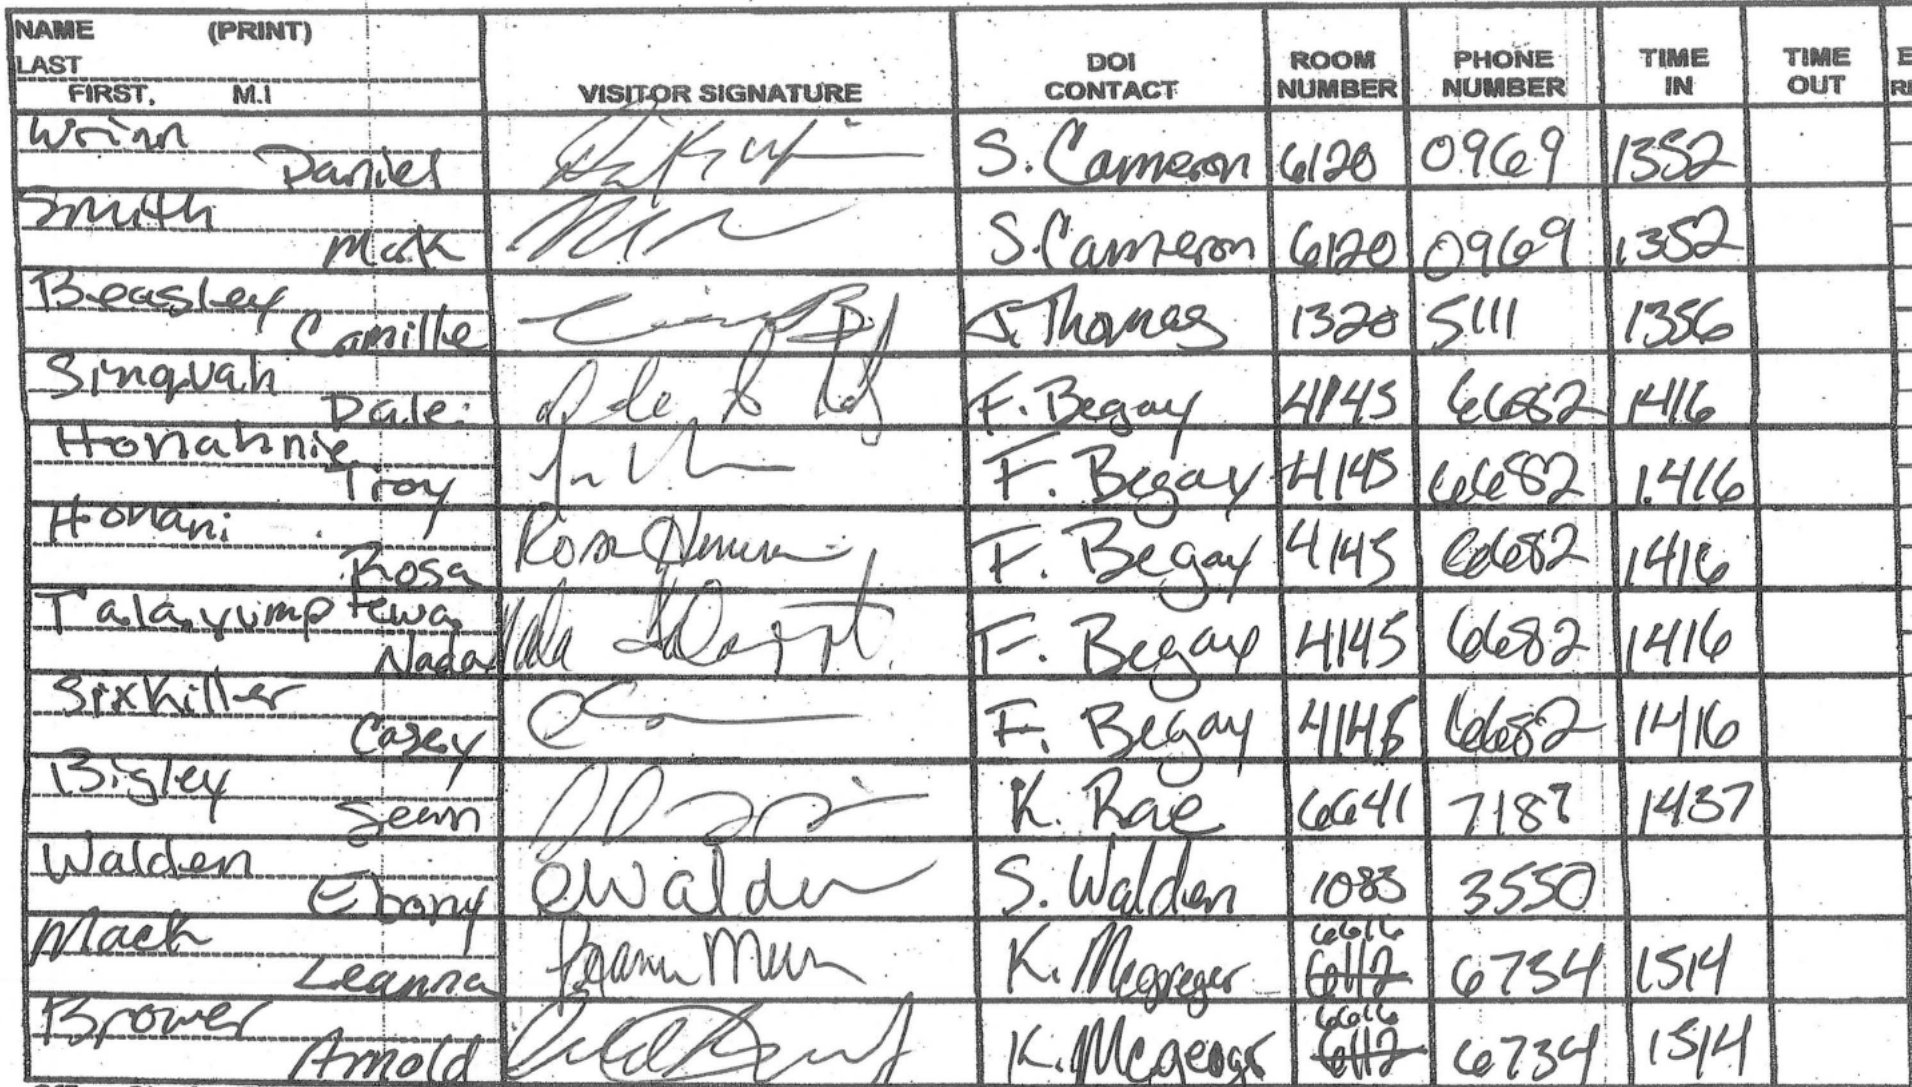 NAME (PRINT)
LAST
FIRST, M.I
VISITOR SIGNATURE
DOI CONTACT
ROOM NUMBER
PHONE NUMBER
TIME IN
TIME OUT
Wrinn Daniel S. Cameron 6120 0969 1352
Smith Mark S. Cameron 6120 0969 1352
Beasley Camille J. Thomas 1320 5111 1356
Sinquah Dale F. Begay 4145 6682 1416
Honahnie Troy F. Begay 4145 6682 1416
Honani Rosa F. Begay 4145 6682 1416
Talayumptewa Nada F. Begay 4145 6682 1416
Sixkiller Casey F. Begay 4145 6682 1416
Bigley Sean K. Rae 6641 7187 1437
Walden Ebony EWalden S. Walden 1083 3550
Mack Leanna K. Mcgreger 6616 6112 6734 1514
Brower Arnold K. Mcgeogr 6616 6112 6734 1514